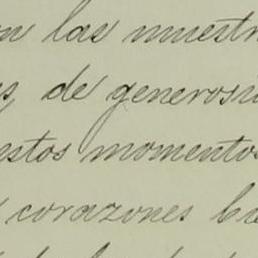 n las muestr
s de generosi
estos momentos
corazones ba